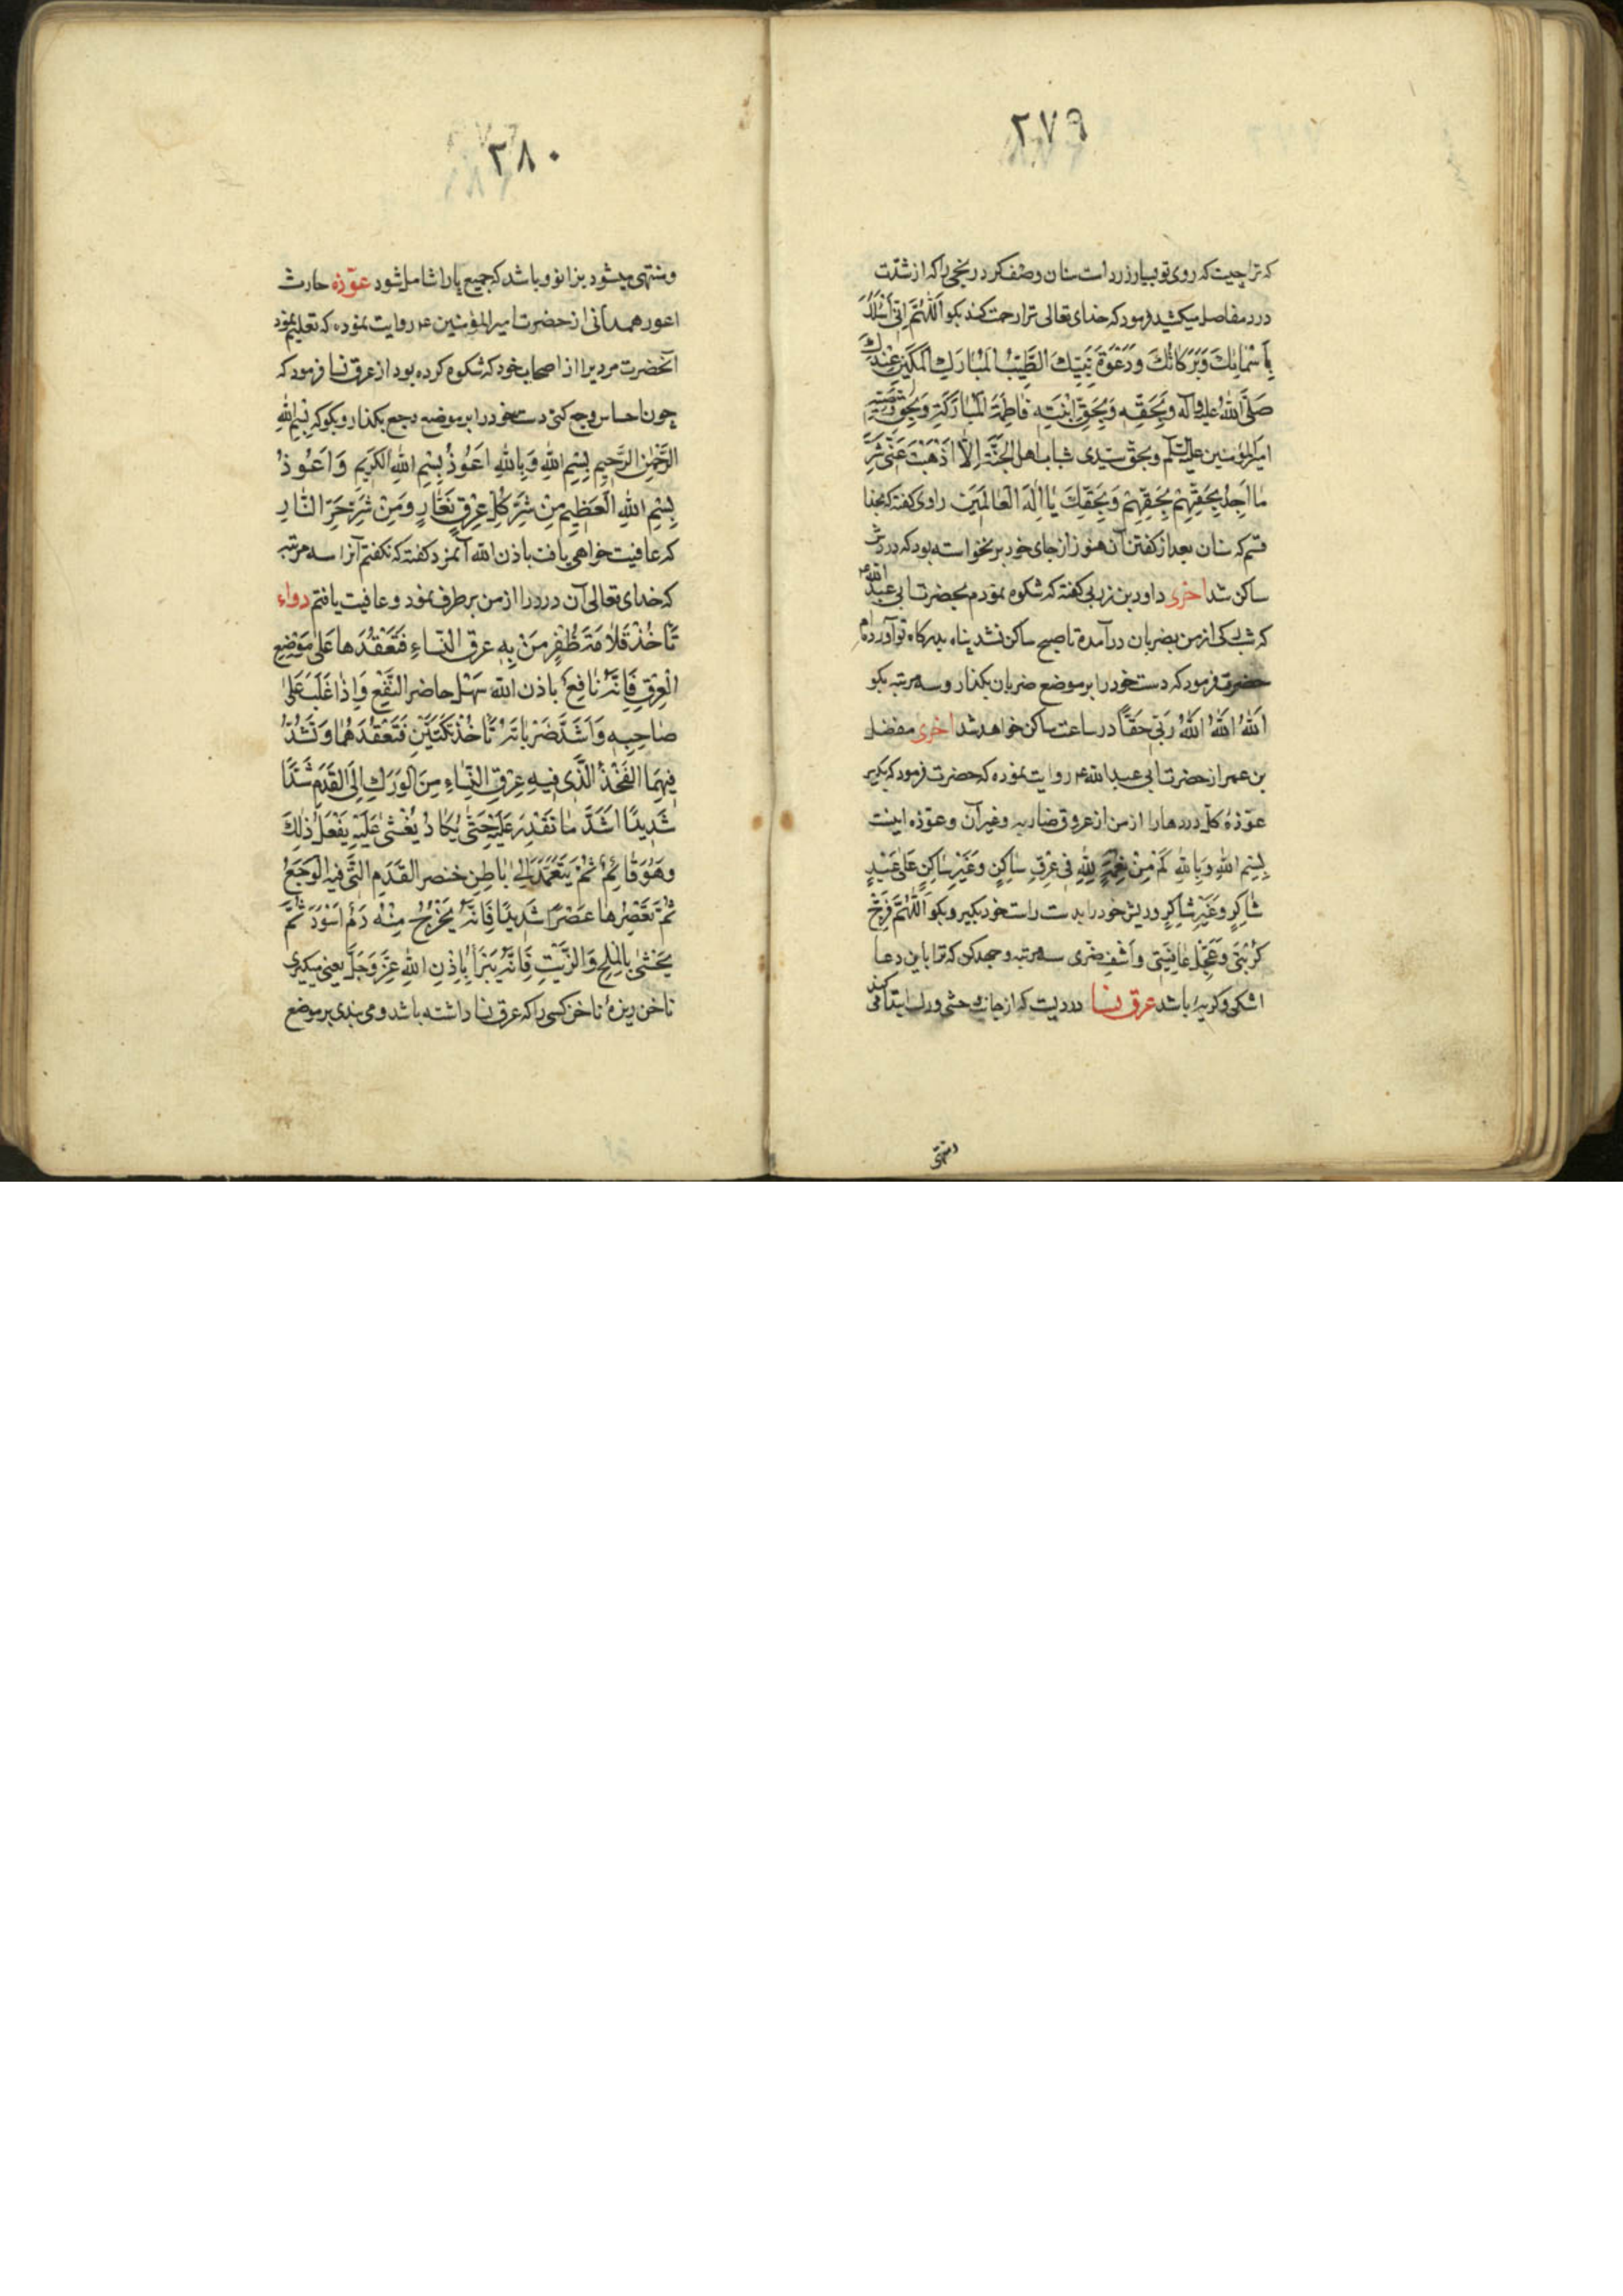 ۲۷۹
که ترا چیست که روی تو بسیار زرد است سنان وصف کرد رنجی را که از شدّت
درد مفاصل میکشید فرمود که خدای تعالی ترا رحمت کند بکو اَللّٰهُمَّ اِنّی اَسْئَلُكَ
بِاَسْمٰائِكَ وَبَرَكٰاتِكَ وَدَعْوَةِ نَبِيِّكَ الطَّيِّبِ الْمُبٰارَكِ الْمَكِينِ عِنْدَكَ
صَلَّى اللّٰهُ عليه وآله وَبِحَقِّهِ وَبِحَقِّ ابْنَتِهِ فٰاطِمَةَ الْمُبٰارَكَةِ وَبِحَقِّ وَصِيِّهِ
امیرالمؤمنین علیه السّلم وبحقّ سیّدی شباب اهل الجَنَّةِ اِلّٰا اَذْهَبْتَ عَنّی شَرَّ
مٰا اَجِدُ بِحَقِّهِمْ بِحَقِّهِمْ وَبِحَقِّكَ يٰا اِلٰهَ الْعٰالَمينَ راوی کفته که بخدا
قسم که سنان بعد از کفتن آن هنوز از جای خود برنخواسته بود که دردش
ساکن شد اخری داود بن زربی کفته که شکوه نمودم بحضرت ابی عبد الله ع
که شب رکی از من بضربان درآمده تا صبح ساکن نشد پناه بدرکاه تو آورده ام
حضرت فرمود که دست خود را بر موضع ضربان بکذار و سه مرتبه بکو
اَللّٰهُ اَللّٰهُ اَللّٰهُ رَبّی حَقّاً در ساعت ساکن خواهد شد اخری مفضل
بن عمر از حضرت ابی عبدالله ع روایت نموده که حضرت فرمود که بکیر
عوّذهٔ کلّ دردها را از من از عروق ضاربه و غیر آن و عوّذه اینست
بِسْمِ اللّٰهِ وَبِاللّٰهِ كَمْ مِنْ نِعْمَةٍ لِلّٰهِ فی عِرْقٍ سٰاكِنٍ وَغَيْرِ سٰاكِنٍ عَلىٰ عَبْدٍ
شٰاكِرٍ وَغَيْرِ شٰاكِرٍ و ریش خود را بدست راست خود بکیر و بکو اَللّٰهُمَّ فَرِّجْ
كُرْبَتی وَعَجِّلْ عٰافِيَتی وَاكْشِفْ ضُرّی سه مرتبه و جهد کن که ترا با این دعا
اشکی و کریهٔ باشد عرق نسا دردیست که از جانب وحشی ورک ابتدا می کند
۲۸۰
و منتهی میشود بزانو و باشد که جمیع پا را شامل شود عوّذه حارث
اعور همدانی از حضرت امیرالمؤمنین ع روایت نموده که تعلیم نمود
آنحضرت مردیرا از اصحاب خود که شکوه کرده بود از عرق نسا فرمود که
چون احساس وجع کنی دست خود را بر موضع وجع بکذار و بکو که بِسْمِ اللّٰهِ
الرَّحْمٰنِ الرَّحيمِ بِسْمِ اللّٰهِ وَبِاللّٰهِ اَعُوذُ بِسْمِ اللّٰهِ الْكَريمِ وَاَعُوذُ
بِسْمِ اللّٰهِ الْعَظيمِ مِنْ شَرِّ كُلِّ عِرْقٍ نَعّٰارٍ وَمِنْ شَرِّ حَرِّ النّٰارِ
که عافیت خواهی یافت باذن الله آنمرد کفته که نکفتم آنرا سه مرتبه
که خدای تعالی آن درد را از من برطرف نمود و عافیت یافتم دواء
تَأْخُذُ قُلٰامَةَ ظُفْرِ مَنْ بِهِ عِرْقُ النِّسٰاءِ فَتَعْقُدُهٰا عَلىٰ مَوْضِعِ
الْعِرْقِ فَاِنَّهُ نٰافِعٌ باذن الله سَهْلٌ حاضر النَّفْعِ وَاِذٰا غَلَبَ عَلىٰ
صٰاحِبِهِ وَاشْتَدَّ ضَرَبٰانُهُ تَأْخُذُ تَكَّتَيْنِ فَتَعْقُدُهُمٰا وَتَشُدُّ
فيهِمَا الْفَخْذَ الَّذی فيهِ عِرْقُ النِّسٰاءِ مِنَ الْوَرَكِ اِلَى الْقَدَمِ شَدّاً
شَديداً اَشَدَّ مٰا تَقْدِرُ عَلَيْهِ حَتّىٰ يَكٰادُ يُغْشىٰ عَلَيْهِ يَفْعَلُ ذٰلِكَ
وَهُوَ قٰائِمٌ ثُمَّ يَتَعَمَّدُ اِلىٰ بٰاطِنِ خنصر القَدَمِ الَّتی فيه الْوَجَعُ
ثُمَّ تَعْصِرُهٰا عَصْراً شَديداً فَاِنَّهُ يَخْرُجُ مِنْهُ دَمٌ اَسْوَدُ ثُمَّ
يُحْشىٰ بِالْمِلْحِ وَالزَّيْتِ فَاِنَّهُ يَبْرَأُ بِاِذْنِ اللّٰهِ عَزَّ وَجَلَّ یعنی میکیری
ناخن ریزهٔ ناخن کسی را که عرق نسا داشته باشد و می بندی بر موضع